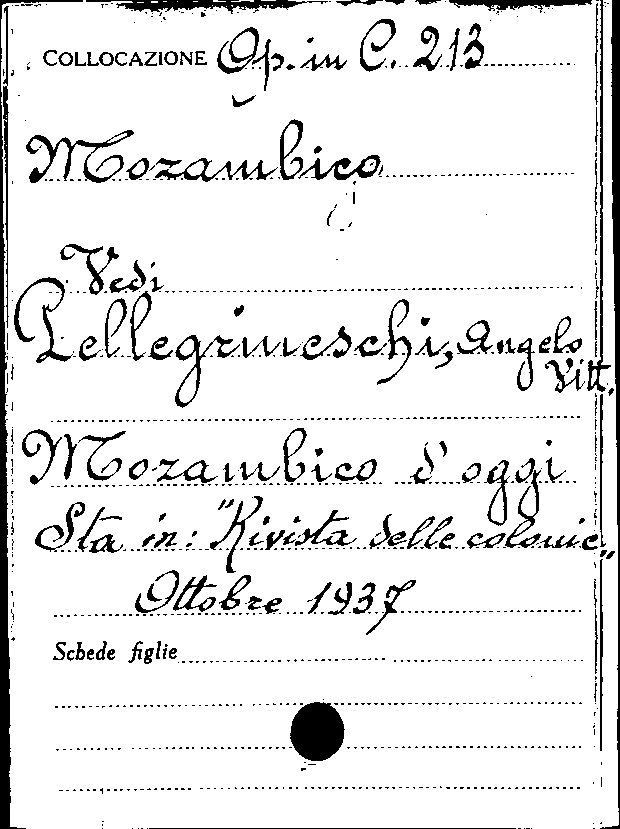 COLLOCAZIONE Op. in C. 213
Mozambico
Vedi
Pellegrineschi, Angelo
Vitt.
Mozambico d'oggi
Sta in: "Rivista delle colonie„
Ottobre 1937
Schede figlie